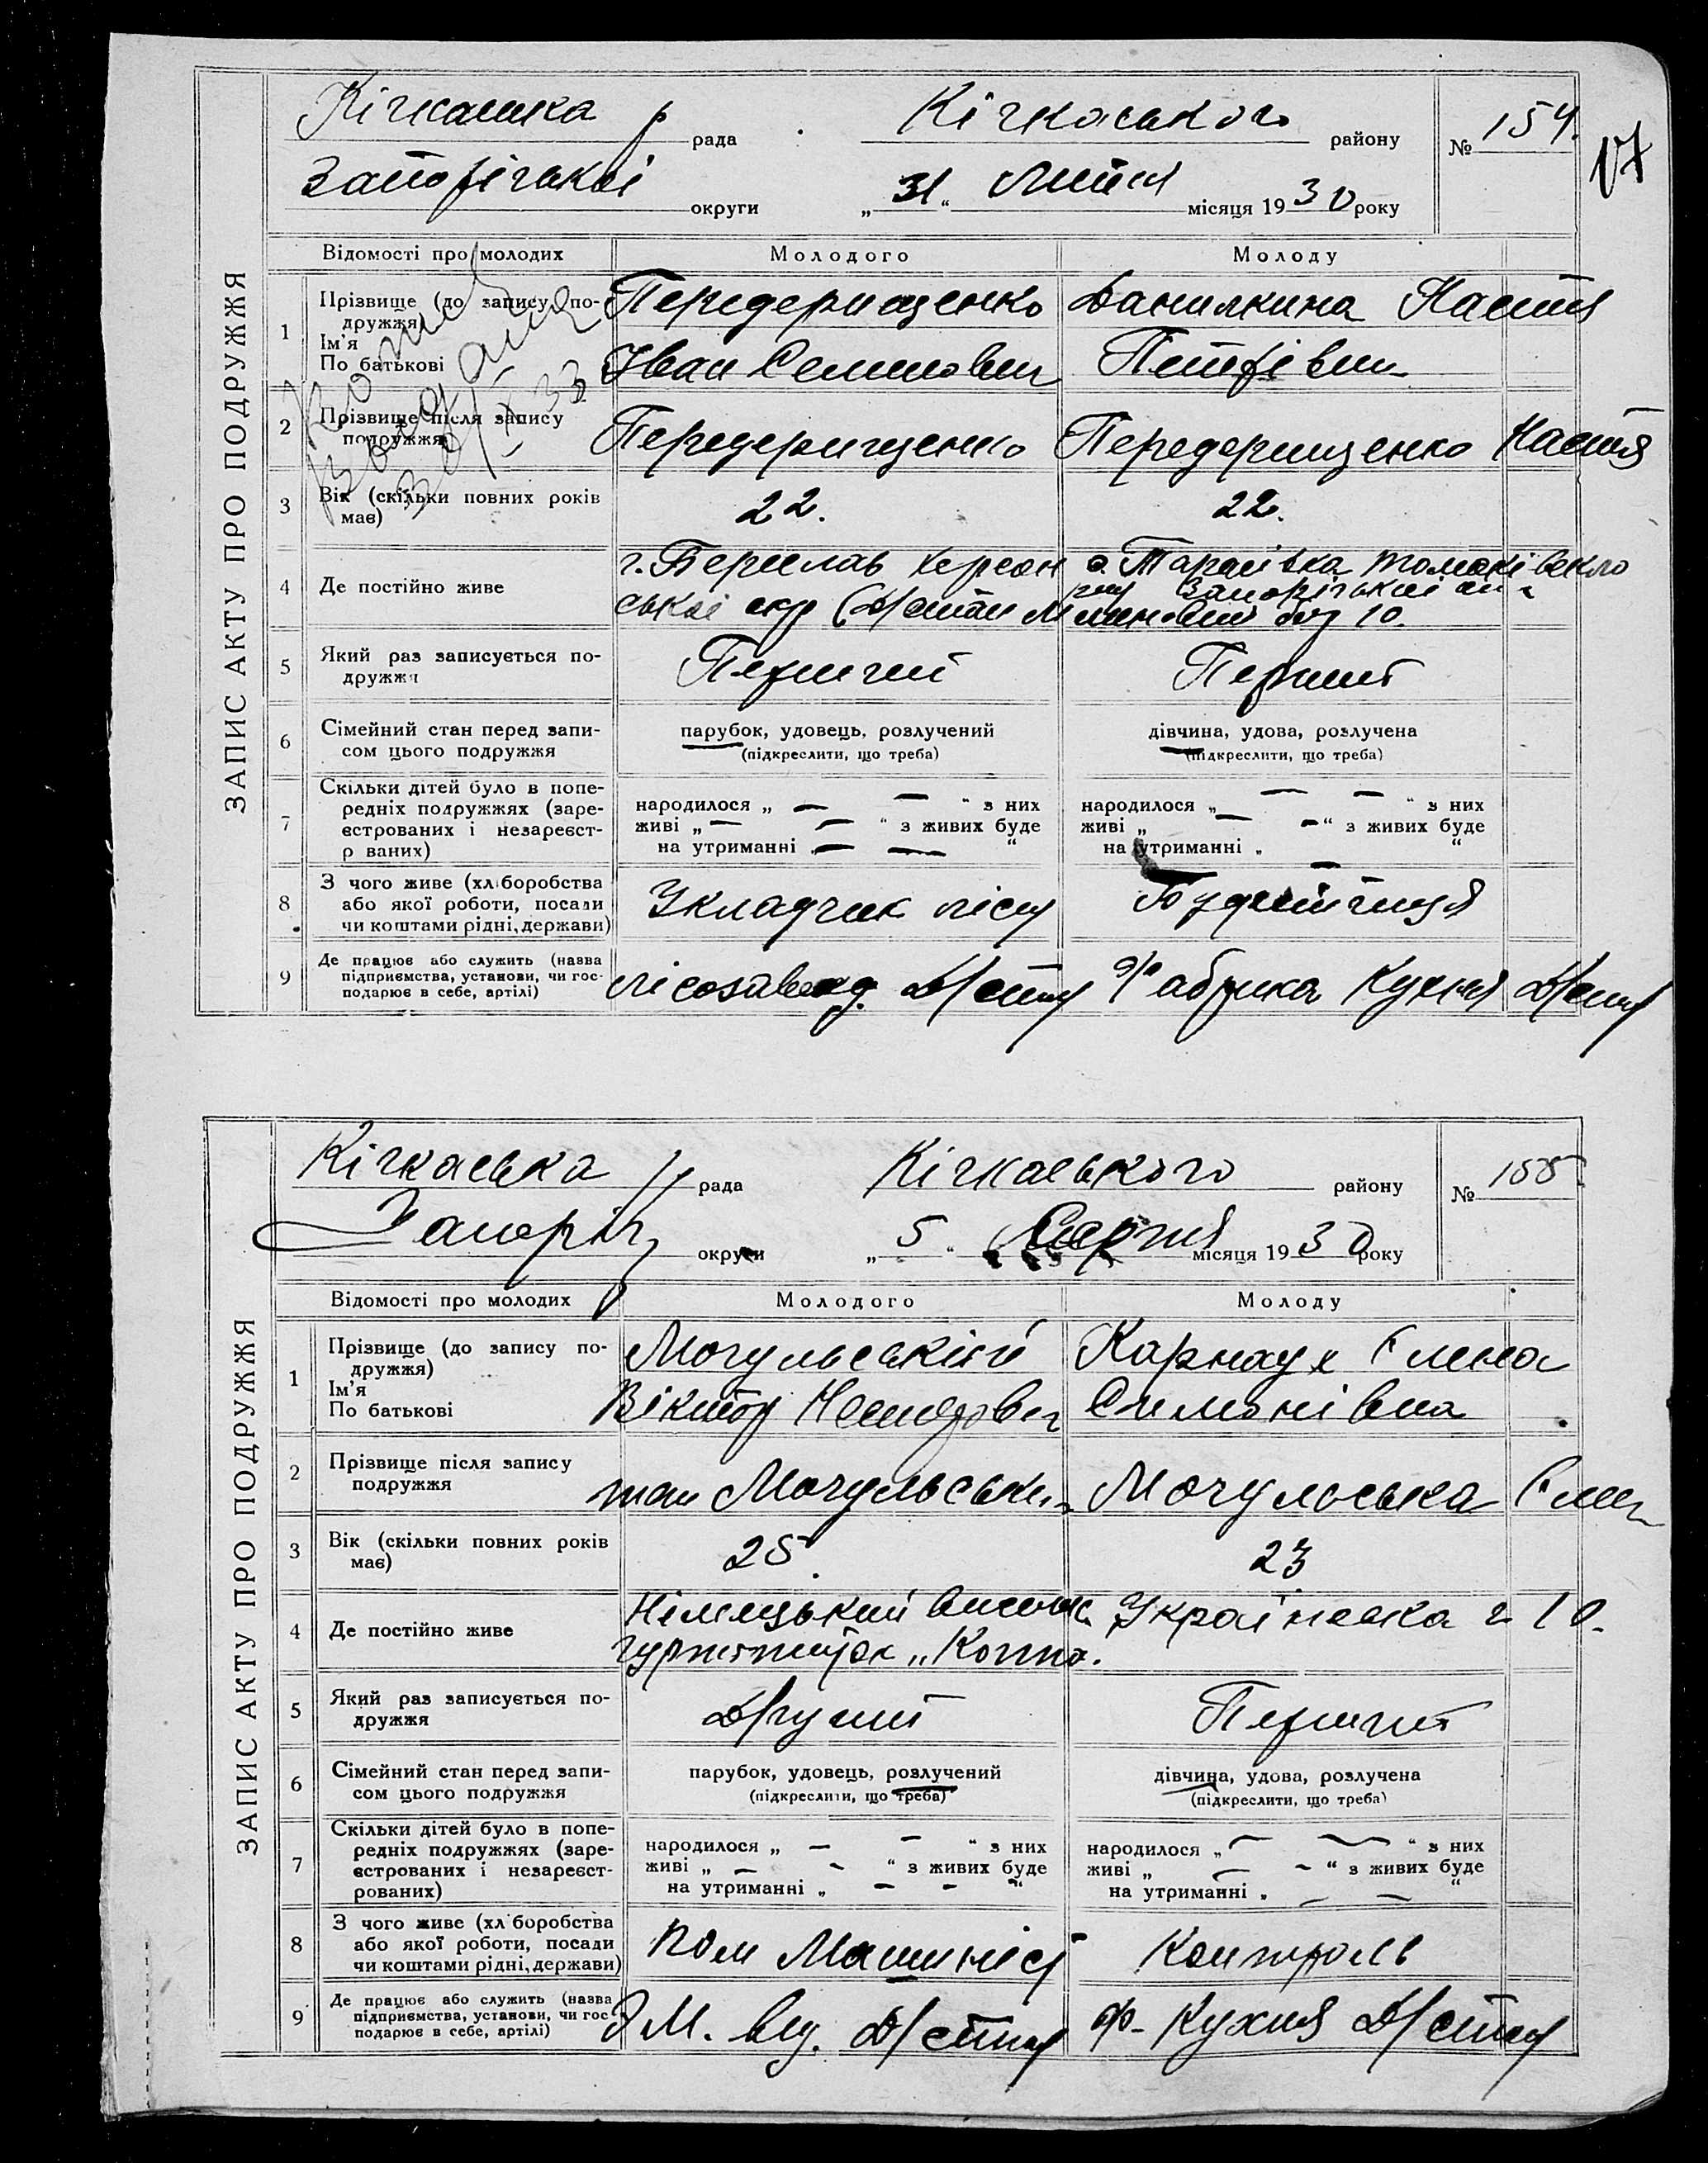 Кічкаська р рада Кічкаського району № 154.
17
Запорізької округи „31“ Липня місяця 1930 року
ЗАПИС АКТУ ПРО ПОДРУЖЖЯ
Відомості про молодих Молодого Молоду
1 Прізвище (до запису подружжя) Передерищенко Данилкина Настя
Ім'я
По батькові Іван Семенович Петрівна
Копія
Видана
30/X 33
2 Прізвище після запису подружжя Передерищенко Передерищенко Настя
3 Вік (скільки повних років має) 22. 22.
4 Де постійно живе г. Берислав Херсон с. Тарасівка Томаківського
ської окр Запорізької
10.
5 Який раз записується подружжя Перший Перший
6 Сімейний стан перед записом цього подружжя парубок, удовець, розлучений дівчина, удова, розлучена
(підкреслити, що треба) (підкреслити, що треба)
7 Скільки дітей було в попередніх подружжях (зареєстрованих і незареєстр ваних)
народилося „ — — “ з них народилося „ — — “ з них
живі „ — — “ з живих буде живі „ — — “ з живих буде
на утриманні „ — — “ на утриманні „ — “
8 З чого живе (хл боробства або якої роботи, посади чи коштами рідні, держави) Укладчик лісу
9 Де працює або служить (назва підприємства, установи, чи господарює в себе, артілі) лісозавод. Д/стан Фабрика Кухня Д/стан
Кічкаська р рада Кічкаського району № 155
Запоріз округи „5“ Серпня місяця 1930 року
ЗАПИС АКТУ ПРО ПОДРУЖЖЯ
Відомості про молодих Молодого Молоду
1 Прізвище (до запису подружжя) Мочульський Карнаух Єлена
Ім'я
По батькові Віктор Симонівна
2 Прізвище після запису подружжя Мочульськи Мочульська Єлен
3 Вік (скільки повних років має) 25. 23
4 Де постійно живе Німецький висілок Українська 2 10.
гуртожиток „Комно.
5 Який раз записується подружжя Другий Перший
6 Сімейний стан перед записом цього подружжя парубок, удовець, розлучений дівчина, удова, розлучена
(підкреслити, що треба) (підкреслити, що треба)
7 Скільки дітей було в попередніх подружжях (зареєстрованих і незареєстрованих)
народилося „ — — “ з них народилося „ — — “ з них
живі „ — — “ з живих буде живі „ — — “ з живих буде
на утриманні „ — — “ на утриманні „ — — “
8 З чого живе (хл боробства або якої роботи, посади чи коштами рідні, держави) Пом Машиніст Контроль
9 Де працює або служить (назва підприємства, установи, чи господарює в себе, артілі) М. від. Д/стан Ф-Кухня Д/стан